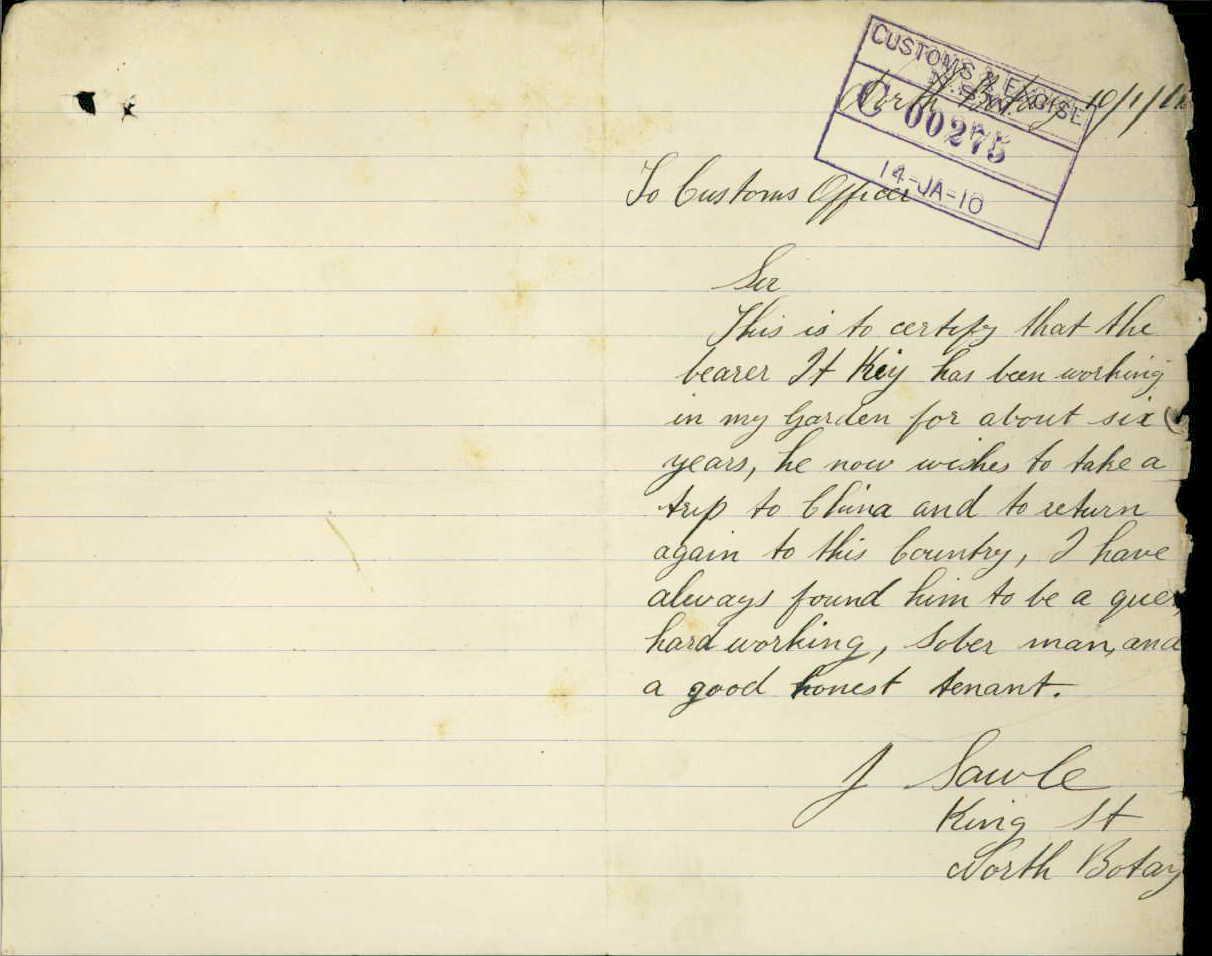 CUSTOMS & EXCISE
N.S.W.
C 00275
14-JA-10
North Botany 10/1/10
To Customs Officer
Sir
This is to certify that the
bearer It Kiy has been working
in my Garden for about six (6
years, he now wishes to take a
trip to China and to return
again to this Country, I have
always found him to be a quet,
hard working, sober man, and
a good honest tenant.
J Sawle
King St
North Botany